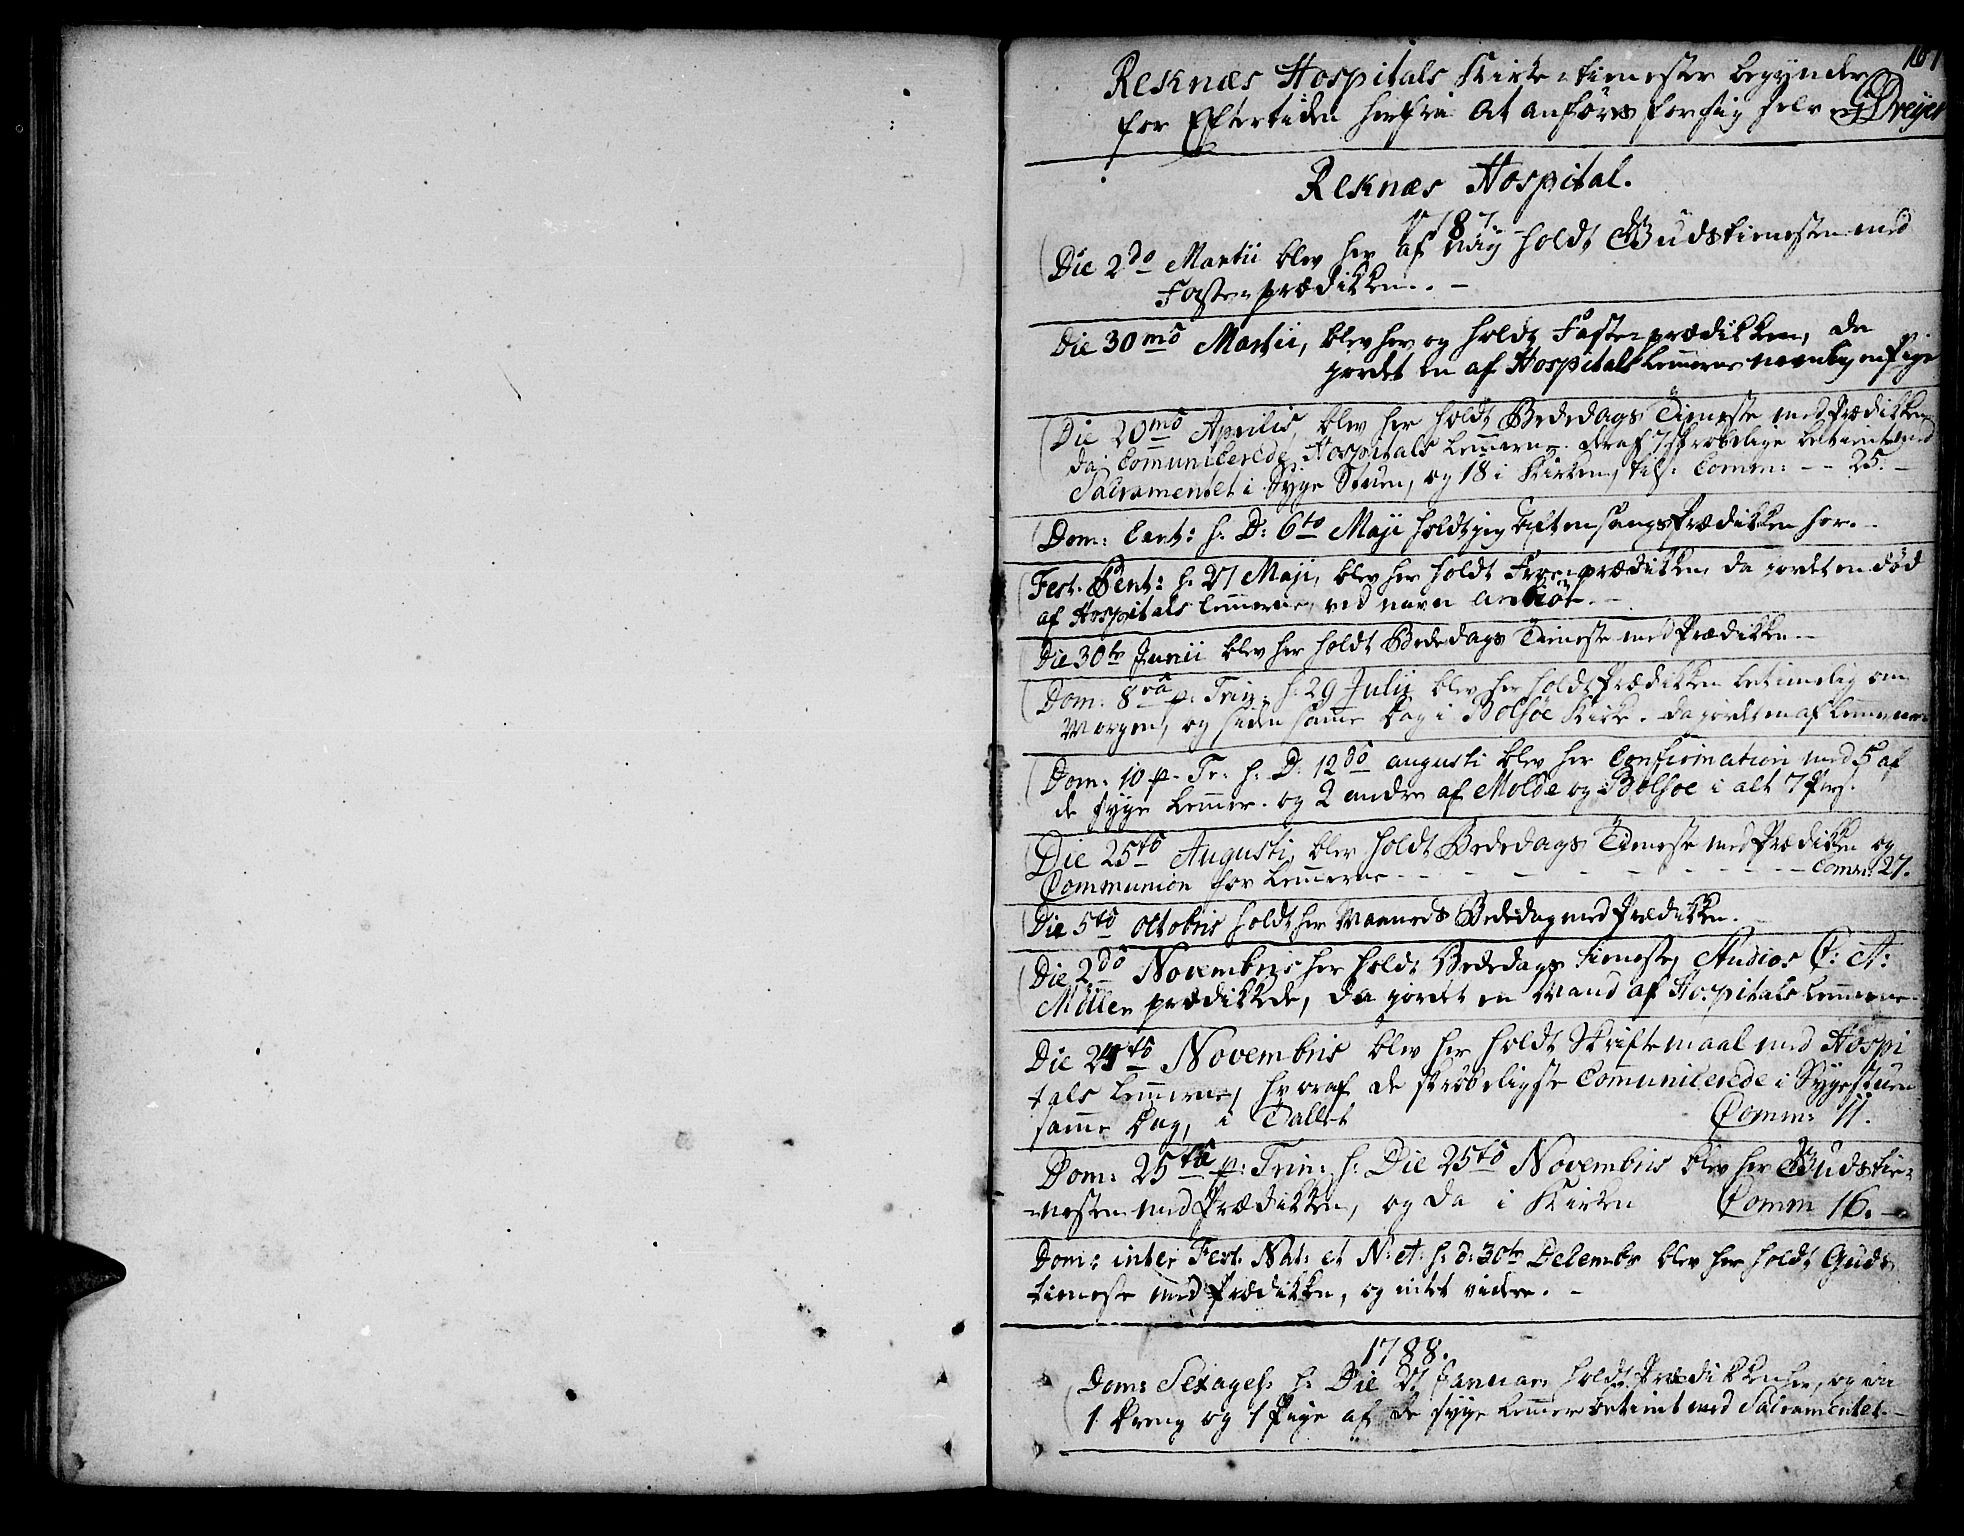 167
Reknæs Hospitals Kirke-tienester begynder
for Eftertiden herfra at anføres for sig selv GDreyer
Reknæs Hospital.
1787
Die 2do Martii blev her af mig holdt Gudstienesten med
Faste-prædikken. -
Die 30mo Martii, blev her og holdt Faste-prædikken, da
jordet en af Hospitals Lemmerne navnlig en Pige
Die 20mo Aprilis, blev her holdt Bededags Tieneste med Prædikken
da Comunicerede Hospitals Lemmerne, deraf 7 skrøbelige betient med
Sacramentet i Syge Stuen, og 18 i Kirken, til: Comm: - - 25. -
Dom: Cant: h: D: 6to Maji holdt jeg Aftensangs Prædikken her. -
Fest. Pent: h: 27 Maji, blev her holdt Froeprædikken, da jordet en død
af Hospitals Lemmerne, ved navn
Die 30te Junii blev her holdt Bededags Tieneste med Prædikken -
Dom: 8va p: Trin: h: 29 Julii blev her holdt Prædikken betimelig om
Morgen, og siden samme Dag i Bolsøe Kirke. da jordet en af Lemmerne
Dom: 10 p. Tr: h: D: 12do augusti blev her Confirmation med 5 af
de syge Lemmer. og 2 andre af Molde og Bolsøe i alt 7 Pers.
Die 25to Augusti, blev holdt Bededags Tieneste med Prædiken og
Communion for Lemmerne - - - - - - - - Comm: 27.
Die 5to Octobris holdt her Maaneds Bededag med Prædikken. -
Die 2do Novembris her holdt Bededags tieneste, Studios C: A:
Møller prædikkede, da jordet en Mand af Hospitals Lemmerne
Die 24to Novembris blev her holdt Skriftemaal med Hospi
tals Lemmerne, hvoraf de skrøbeligste Comunicerede i Sygestuen
samme Dag, i Tallet Comm: 11.
Dom: 25ta p: Trin: h: Die 25to Novembris blev her Gudstie-
nesten med Prædikken, og da i Kirken Comm 16. -
Dom: inter Fest. Nat: et N: A: h: d: 30te Decembr blev her holdt Guds
tieneste med Prædikken, og intet videre. -
1788.
Dom: Sexages: h: Die 27 Januar holdt Prædikken her, og da
1 Dreng og 1 Pige af de syge Lemmer betient med Sacramentet. -